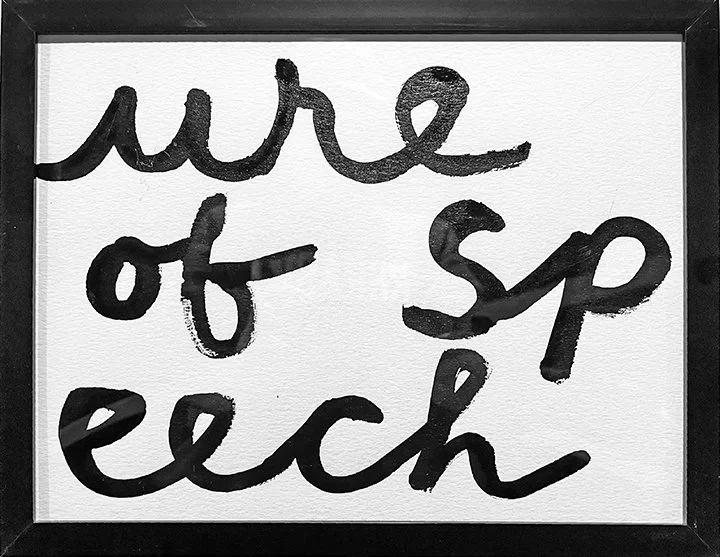 ure
of sp
eech